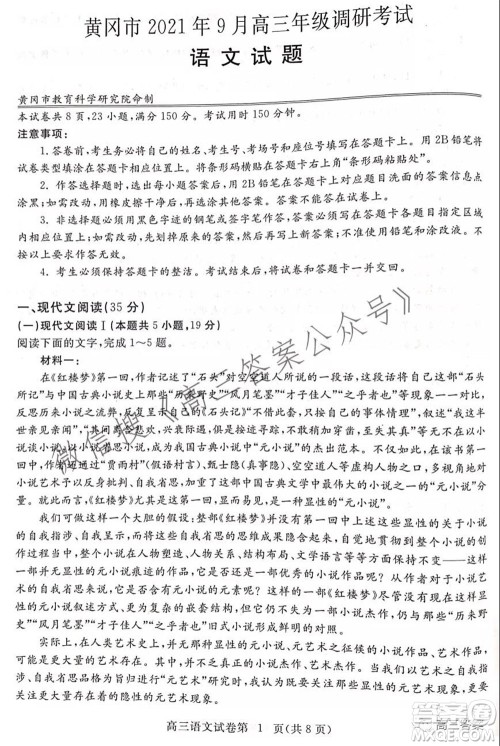 黄冈市 2021 年 9 月高三年级调研考试
语文试题
黄冈市教育科学研究院命制
本试卷共 8 页,23 小题,满分 150 分。考试用时 150 分钟。
注意事项:
1. 答卷前,考生务必将自己的姓名、考号、考场号和座位号填写在答题卡上。用 2B 铅笔将
试卷类型填涂在答题卡相应位置上。将条形码粘贴在答题卡上“条形码粘贴处”。
2. 作答选择题时,选出每小题答案后,用 2B 铅笔在答题卡上对应题目选项的答案信息点
涂黑;如需改动,用橡皮擦干净后,再选涂其他答案。答案不能答在试卷上。
3. 非选择题必须用黑色字迹的钢笔或签字笔作答,答案必须写在答题卡各题目指定区域
内相应位置上;如需改动,先划掉原来的答案,然后再写上新答案;不准使用铅笔和涂改液。不
按以上要求作答无效。
4. 考生必须保持答题卡的整洁。考试结束后,将试卷和答题卡一并交回。
一、现代文阅读(35 分)
(一)现代文阅读 I(本题共 5 小题,19 分)
阅读下面的文字,完成 1~5 题。
材料一:
在《红楼梦》第一回,作者记述了“石头”对空空道人所说的一段话,这段话就将自身“石头
所记”与中国古典小说史上的“历来野史”“风月笔墨”“才子佳人”“熟套”小说对立起来,作者
反思历来小说之弊病,认为“我这《石头记》”“不借此套,只按自己的事体情理”,撰写“我这半
世亲见亲闻”,“其间离合悲欢,兴衰际遇,俱是按迹寻踪,不敢稍加穿凿,至失其真”。如此以小
说谈小说,以小说思小说,成为我国古典小说中“元小说”的杰出范本。不仅如此,该书第一
回中,作者还通过“贾雨村”(假语村言)、甄士隐(真事隐)、空空道人等虚构人物之口,自我揭
示艺术手段以及反身批判、自我省思,成为我国古典小说中具有典范意义的“元小说”之一。所
以,就第一回而言,《红楼梦》尤其是这第一回,显然是一种显性的“元小说”。
我们可以做这样一个大胆的假设:整部《红楼梦》如果没有第一回中上述这些显性的关于
小说的自我指涉、自我省思、自我批判,仅仅从整部小说的内容本身来看,假若没有第一回中的
这些显性的元小说痕迹的作品,它是否还是一部元小说呢?答案是肯定的。即使没有第一回
中的这一系列反思,它仍然是一部杰出的元小说。因为,《红楼梦》尽管没有整体采用西方元小
说的嵌套结构,但它在人物塑造、情节发展、思想境界等方面,均与中国古典小说史上的“历来野
史”“风月笔墨”“才子佳人”等旧式小说形成鲜明的对照。
实际上,在人类艺术史上,显性的元小说、元艺术之类的小说作品、艺术作品并不多,而更大
量的艺术存在,其实是隐性的元艺术。我们不能只注意显性的元小说与元艺术的显在,而忽略
了更大量存在着的隐性的元小说作品与元艺术作品。
高三语文试卷第 1 页(共 8 页)
微信搜《高三答案公众号》
高三答案